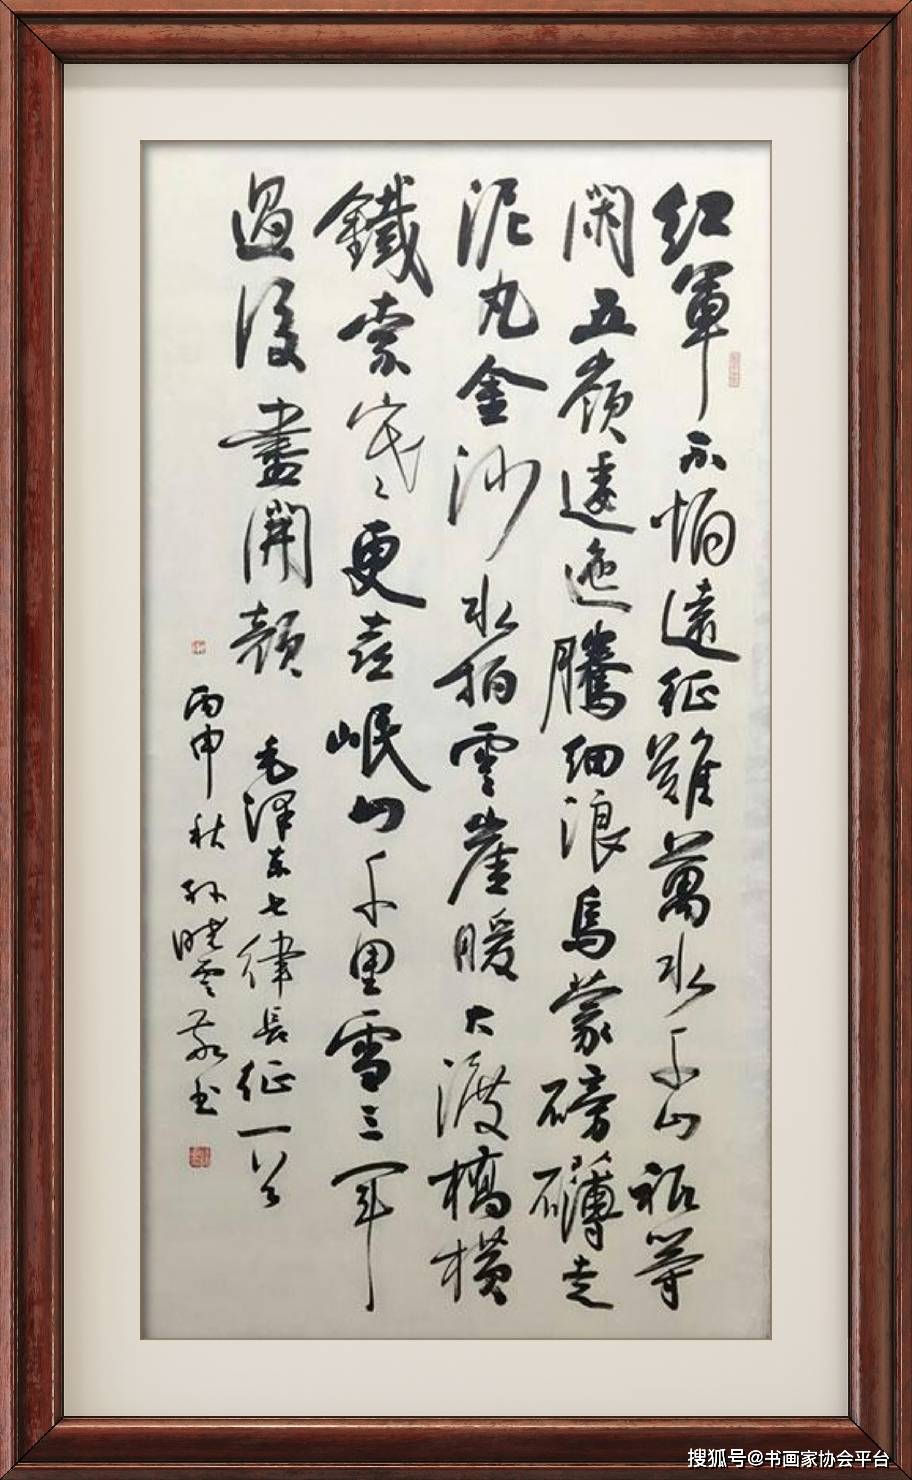 紅軍不怕遠征難萬水千山祗等
閑五嶺逶迤騰細浪烏蒙磅礴走
泥丸金沙水拍雲崖暖大渡橋橫
鐵索寒更喜岷山千里雪三軍
過後盡開顏
毛澤东七律長征一首
丙申秋孙曉雲敬书
搜狐号@书画家协会平台